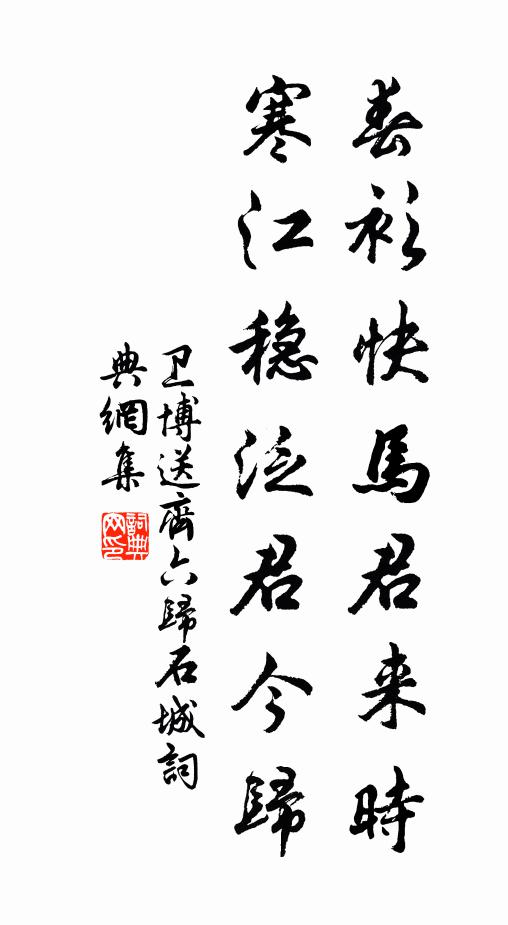 春衫快馬君来時
寒江穏泛君今歸
卫博送齊六歸石城詞
典網集
詞典網印